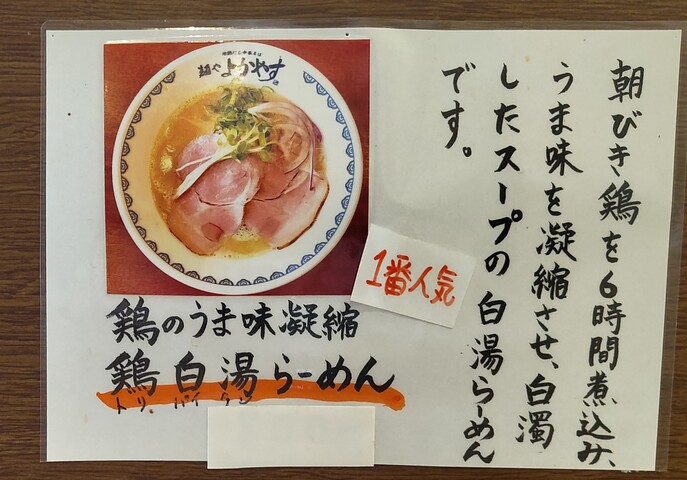 朝びき鶏を6時間煮込み、
うま味を凝縮させ、白濁
したスープの白湯らーめん
です。
麺や よかやす
1番人気
鶏のうま味凝縮
鶏白湯らーめん
トリ パイタン